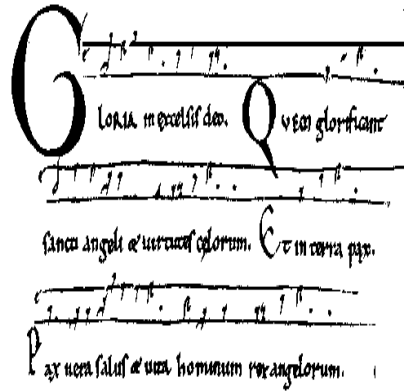 GLORIA in excelsis deo. Quem glorificant
sancti angeli & uirtutes celorum. Et in terra pax.
Pax uera salus & uita hominum rex angelorum.